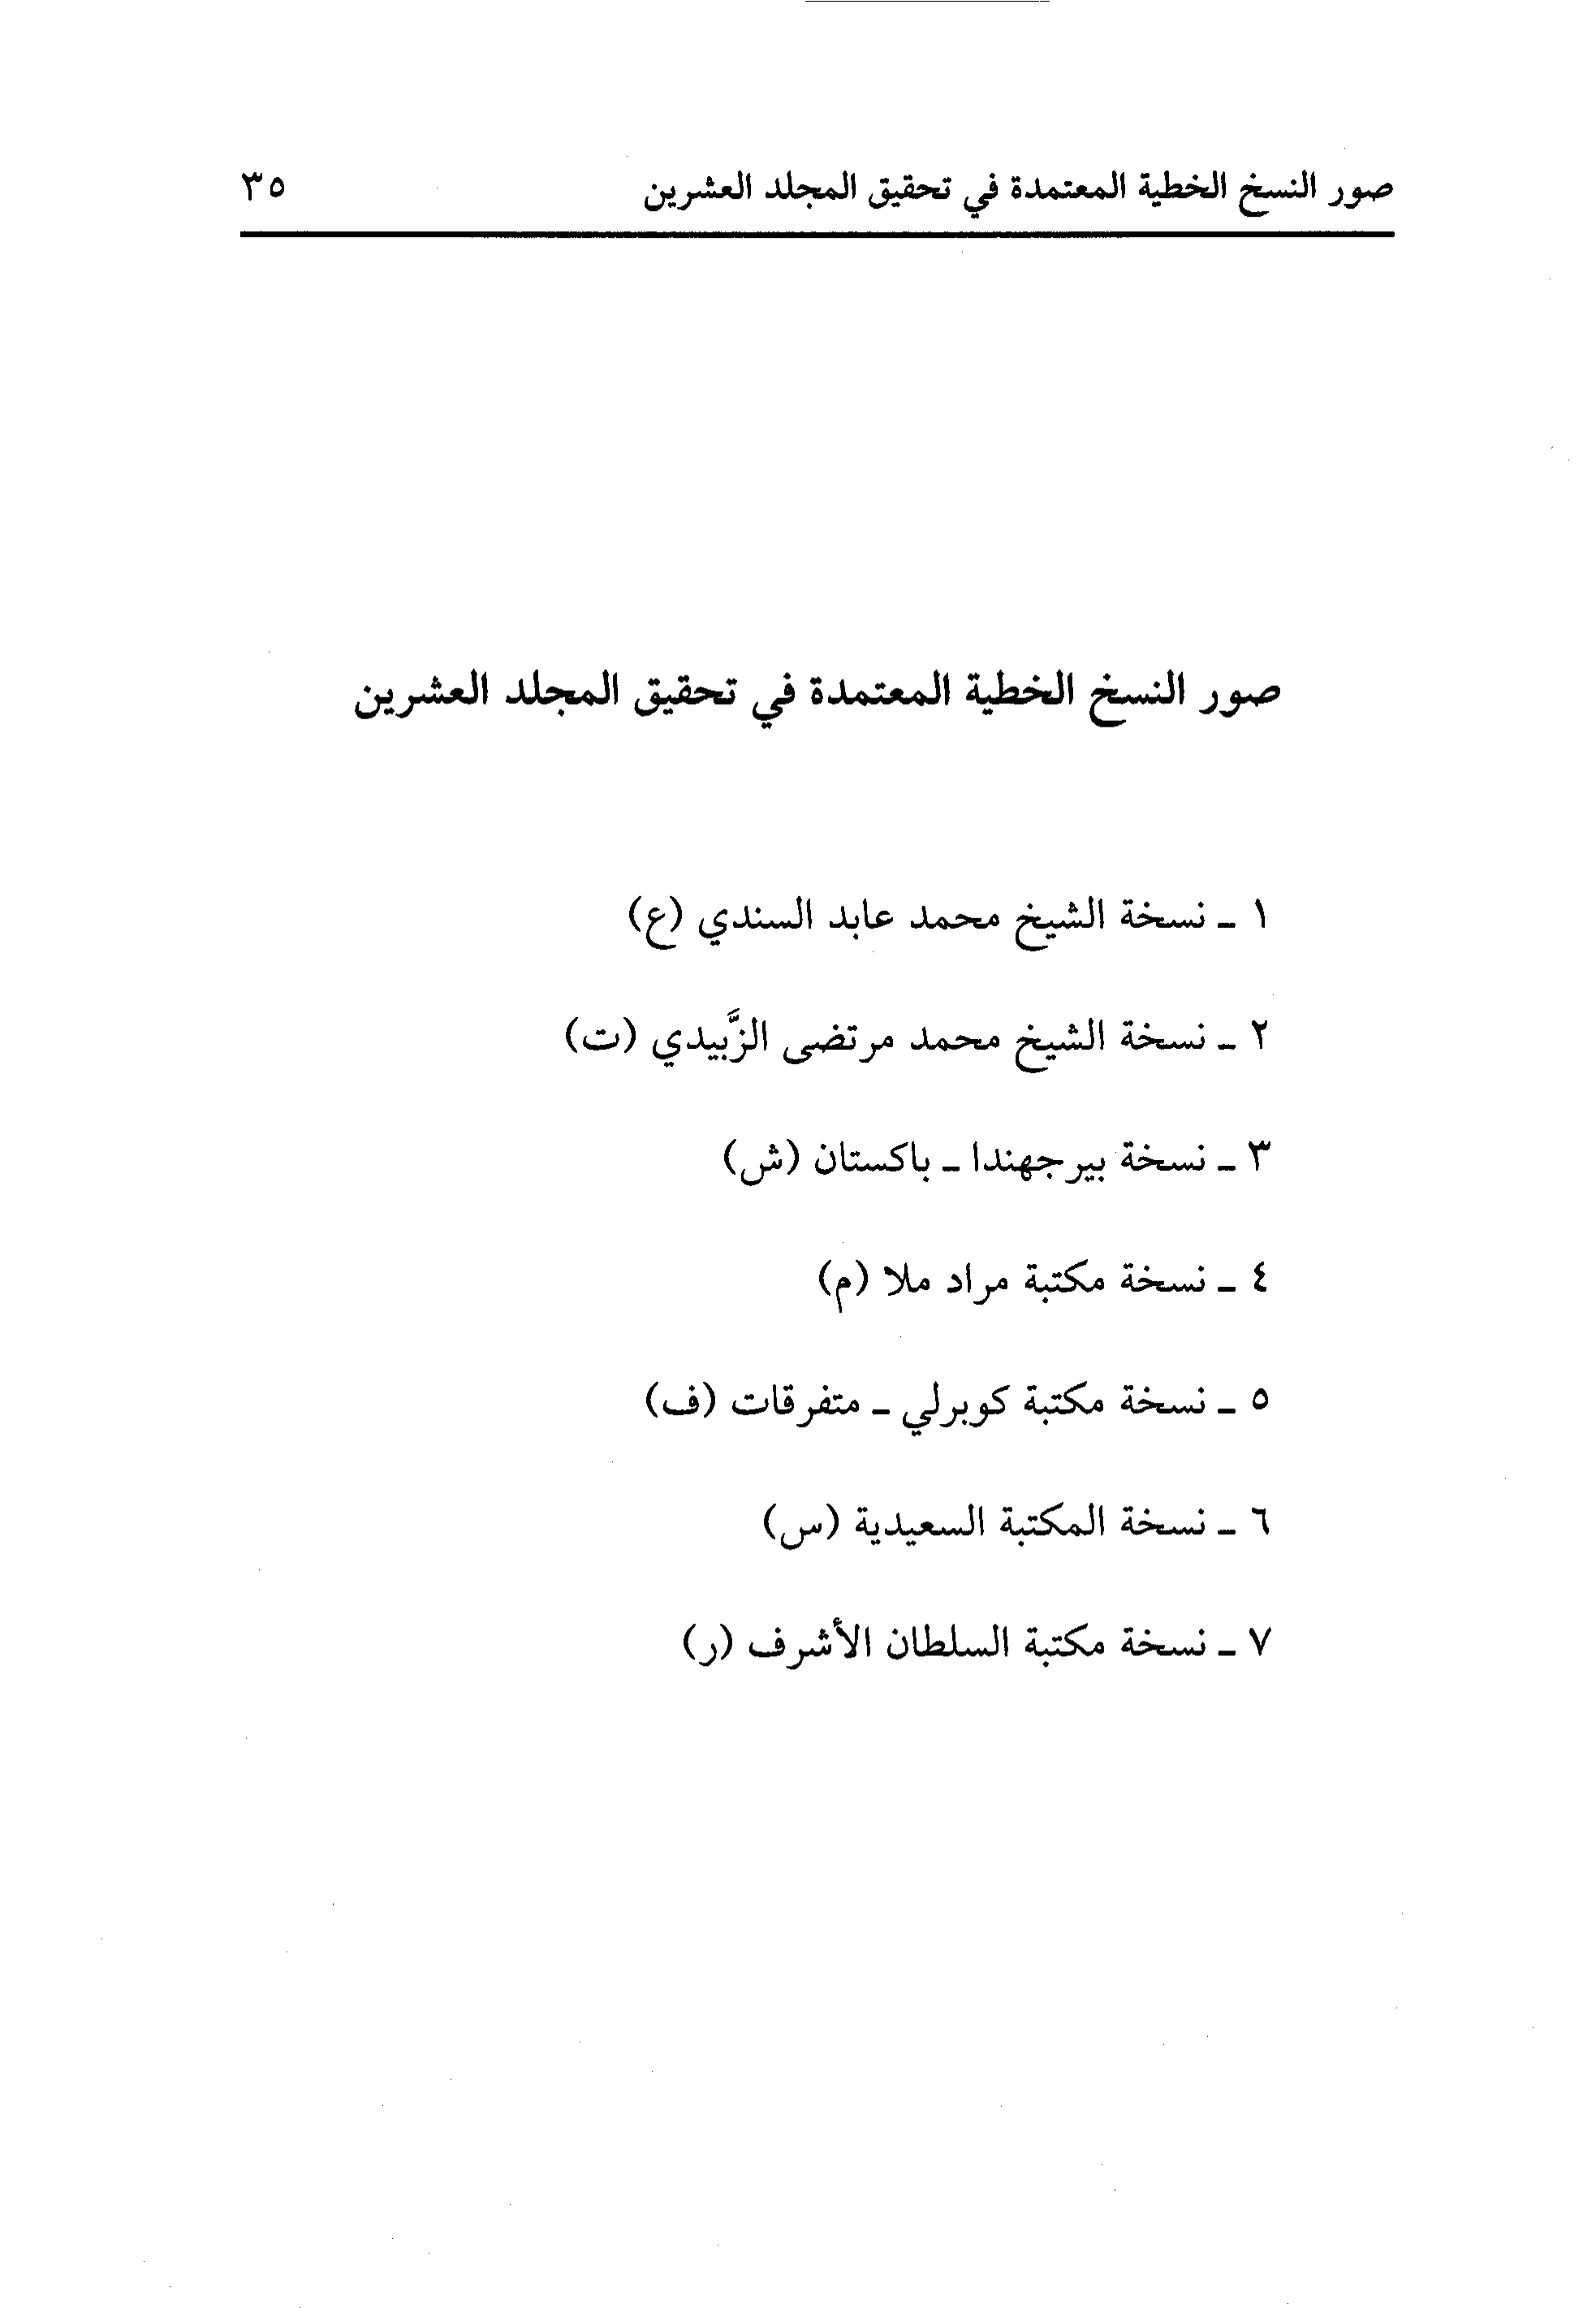 صور النسخ الخطية المعتمدة في تحقيق المجلد العشرين ٣٥
صور النسخ الخطية المعتمدة في تحقيق المجلد العشرين
١ ـ نسخة الشيخ محمد عابد السندي (ع)
٢ ـ نسخة الشيخ محمد مرتضى الزَّبيدي (ت)
٣ ـ نسخة بيرجهندا ـ باكستان (ش)
٤ ـ نسخة مكتبة مراد ملا (م)
٥ ـ نسخة مكتبة كوبرلي ـ متفرقات (ف)
٦ ـ نسخة المكتبة السعيدية (س)
٧ ـ نسخة مكتبة السلطان الأشرف (ر)